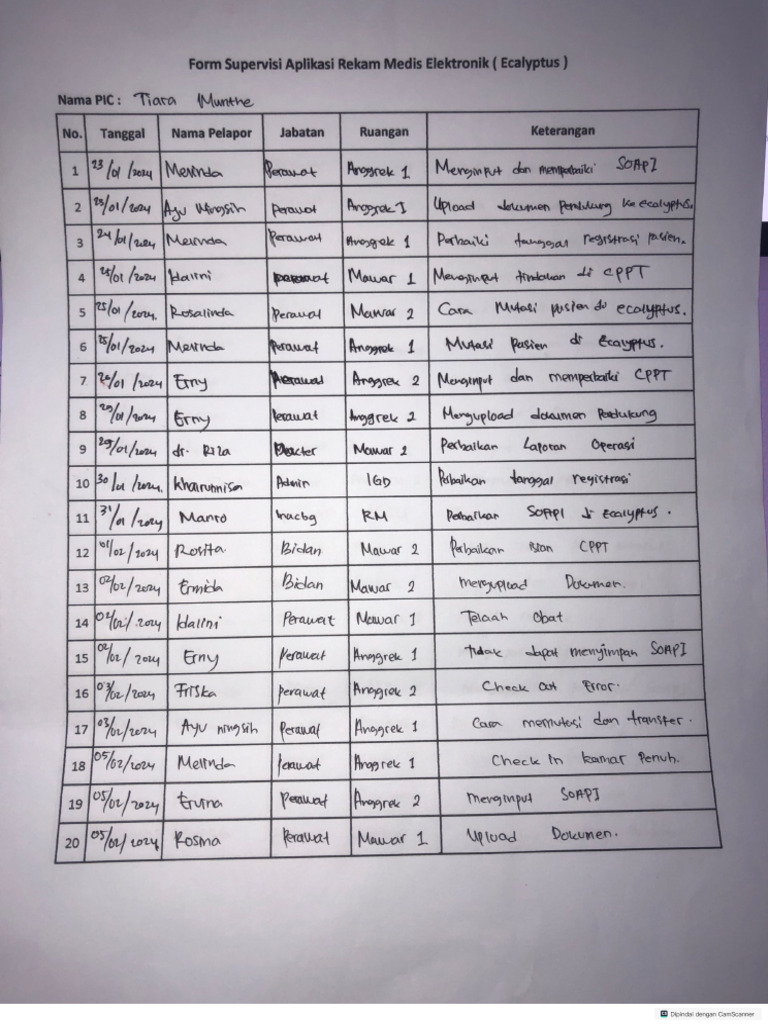 Form Supervisi Aplikasi Rekam Medis Elektronik ( Ecalyptus )
Nama PIC : Tiara Munthe
No. Tanggal Nama Pelapor Jabatan Ruangan Keterangan
1 23/01/2024 Merinda Perawat Anggrek 1 Menginput dan memperbaiki SOAPI
2 23/01/2024 Ayu Ningsih perawat Anggrek I Upload dokumen Pendukung ke ecalyptus.
3 24/01/2024 Merinda Perawat Anggrek 1 Perbaiki tanggal registrasi pasien.
4 25/01/2024 Idallni perawat Mawar 1 Menginput tindakan di CPPT
5 25/01/2024. Rosalinda perawat Mawar 2 Cara Mutasi pasien di ecalyptus.
6 25/01/2024 Merinda Perawat Anggrek 1 Mutasi Pasien di Ecalyptus.
7 26/01/2024 Erny Perawat Anggrek 2 Menginput dan memperbaiki CPPT
8 29/01/2024 Erny Perawat Anggrek 2 Mengupload dokumen Pendukung
9 29/01/2024 dr. Riza Docter Mawar 2 Perbaikan Laporan Operasi
10 30/01/2024. Khairunnisa Admin IGD Perbaikan tanggal registrasi
11 31/01/2024 Manto Inacbg RM Perbaikan SOAPI di Ecalyptus.
12 01/02/2024 Rosita. Bidan Mawar 2 Perbaikan CPPT
13 02/02/2024 Ermida Bidan Mawar 2 mengupload Dokumen.
14 02/02/2024 Idallni Perawat Mawar 1 Telaah Obat
15 02/02/2024 Erny Perawat Anggrek 1 tidak dapat menyimpan SOAPI
16 03/02/2024 Friska perawat Anggrek 2 Check out Error.
17 03/02/2024 Ayu ningsih Perawat Anggrek 1 Cara memutasi dan transfer.
18 05/02/2024 Merinda Perawat Anggrek 1 Check In kamar Penuh.
19 05/02/2024 Ervina Perawat Anggrek 2 menginput SOAPI
20 05/02/2024 Rosma Perawat Mawar 1 Upload Dokumen.
Dipindai dengan CamScanner